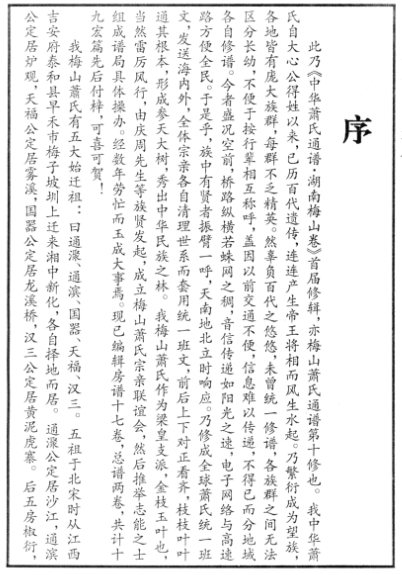 序
此乃《中华萧氏通谱·湖南梅山卷》首届修辑，亦梅山萧氏通谱第十修也。我中华萧
氏自大心公得姓以来，已历百代遗传，连连产生帝王将相而风生水起。乃繁衍成为望族，
各地皆有庞大族群，每群不乏精英。然辜负百代之悠悠，未曾统一修谱，各族群之间无法
区分长幼，不便于按行辈相互称呼，盖因以前交通不便，信息难以传递，不得已而分地域
各自修谱。今者盛况空前，桥路纵横若蛛网之稠，音信传递如阳光之速，电子网络与高速
路方便全民。于是乎，族中有贤者振臂一呼，天南地北立时响应。乃修成全球萧氏统一班
文，发送海内外，全体宗亲各自清理世系而套用统一班文，前后上下对正看齐，枝枝叶叶
通其根本，形成参天大树，秀出中华民族之林。我梅山萧氏作为梁皇支派，金枝玉叶也，
当然雷厉风行，由庆周先生等族贤发起，成立梅山萧氏宗亲联谊会，然后推举志能之士
组成谱局具体操办。经数年劳忙而玉成大事焉。现已编辑房谱十七卷，总谱两卷，共计十
九宏篇先后付梓，可喜可贺！
我梅山萧氏有五大始迁祖：曰通濮、通滨、国器、天福、汉三。五祖于北宋时从江西
吉安府泰和县早禾市梅子坡圳上迁来湘中新化，各自择地而居。通濮公定居沙江，通滨
公定居炉观，天福公定居雾溪，国器公定居龙溪桥，汉三公定居黄泥虎寨。后五房椒衍，